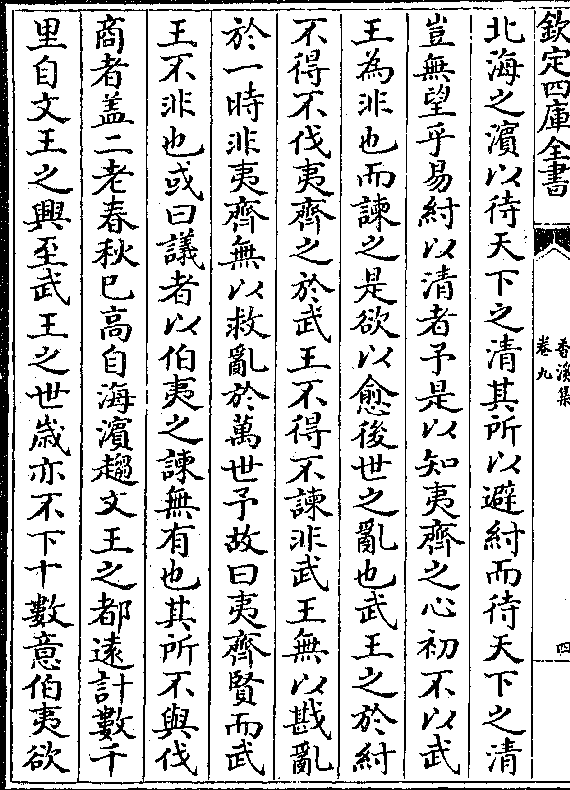 欽定四庫全書
香溪集
卷九
四
北海之濱以待天下之清其所以避紂而待天下之清
豈無望乎易紂以清者予是以知夷齊之心初不以武
王為非也而諫之是欲以愈後世之亂也武王之於紂
不得不伐夷齊之於武王不得不諫非武王無以戡亂
於一時非夷齊無以救亂於萬世予故曰夷齊賢而武
王不非也或曰議者以伯夷之諫無有也其所不與伐
商者盖二老春秋已高自海濱趨文王之都遠計數千
里自文王之興至武王之世歲亦不下十數意伯夷欲